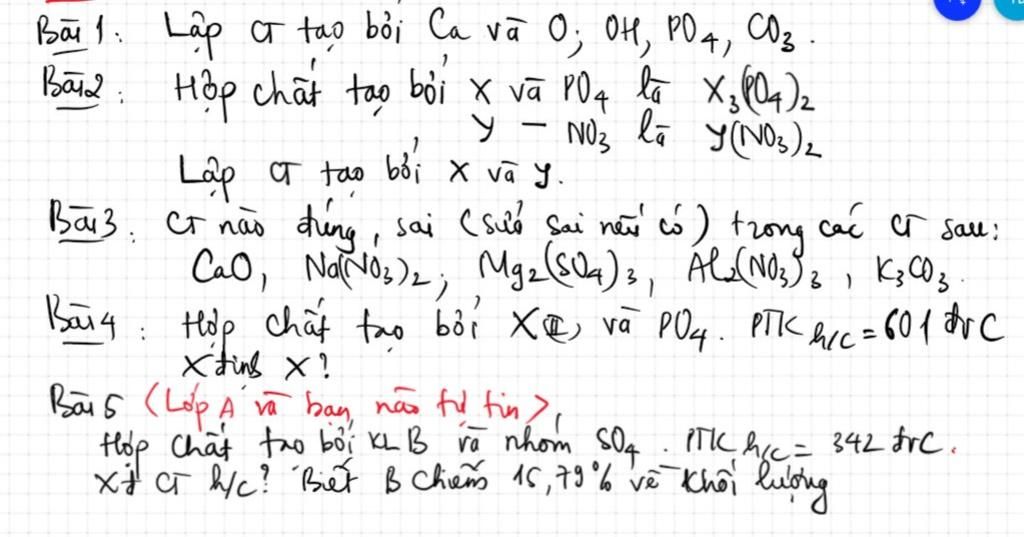 Bài 1: Lập CT tạo bởi Ca và O; OH, PO4, CO3.
Bài 2: Hợp chất tạo bởi X và PO4 là X3(PO4)2
Y – NO3 là Y(NO3)2
Lập CT tạo bởi X và Y.
Bài 3: CT nào đúng, sai (sửa sai nếu có) trong các CT sau:
CaO, Na(NO3)2; Mg2(SO4)3, Al2(NO3)3, K3CO3.
Bài 4: Hợp chất tạo bởi X(II) và PO4. PTK h/c = 601 đvC
X định X?
Bài 5 (Lớp A và bạn nào tự tin),
Hợp chất tạo bởi KL B và nhóm SO4. PTK h/c = 342 đvC.
Xđ CT h/c? Biết B chiếm 15,79% về khối lượng